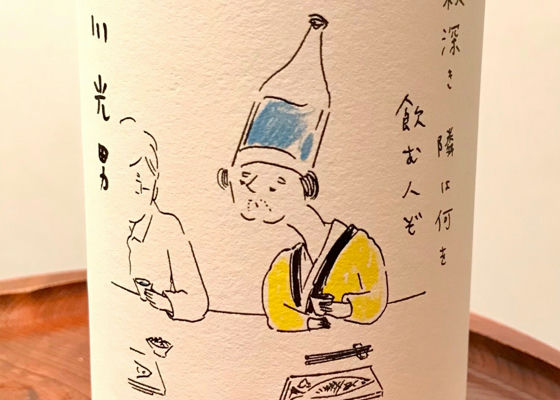 秋深き 隣は何を
飲む人ぞ
川光男